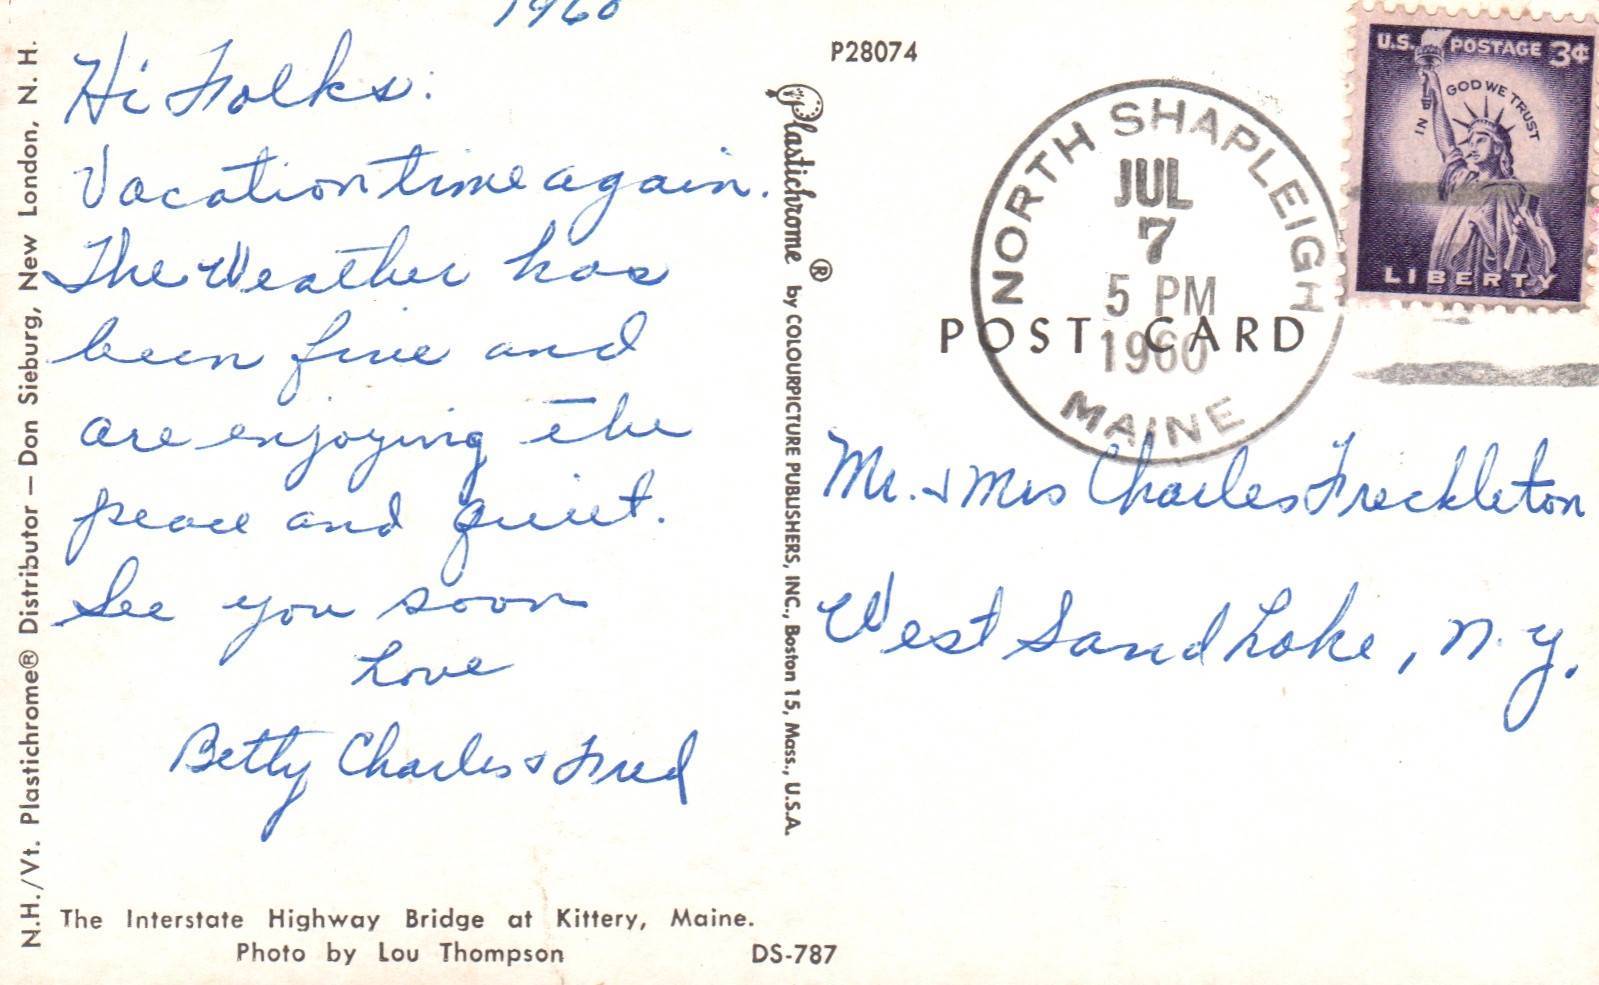 1960
Hi Folks:
Vacation time again.
The Weather has
been fine and
are enjoying the
peace and quiet.
See you soon
Love
Betty Charles & Fred
The Interstate Highway Bridge at Kittery, Maine.
Photo by Lou Thompson
DS-787
N.H./Vt. Plastichrome® Distributor — Don Sieburg, New London, N. H.
Plastichrome ® by COLOURPICTURE PUBLISHERS, INC., Boston 15, Mass., U.S.A.
P28074
POST CARD
NORTH SHAPLEIGH
JUL
7
5 PM
1960
MAINE
U.S. POSTAGE 3¢
IN GOD WE TRUST
LIBERTY
Mr. & Mrs Charles Freckleton
West Sand Lake, N.Y.